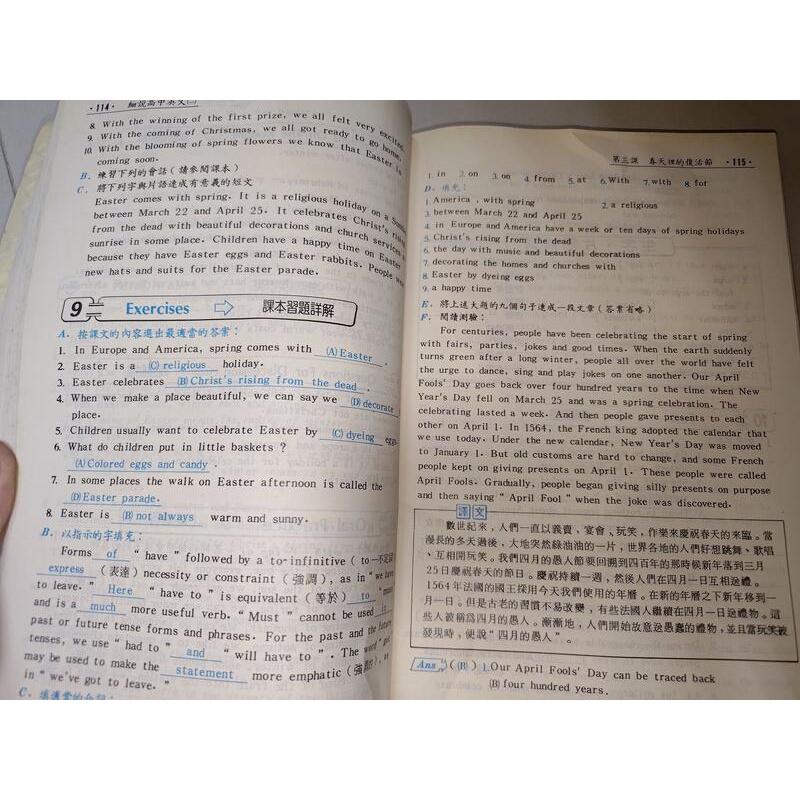 ·114· 細說高中英文㊁
8. With the winning of the first prize, we all felt very excited.
9. With the coming of Christmas, we all got ready to go home.
10. With the blooming of spring flowers we know that Easter is
coming soon.
B. 練習下列的會話(請參閱課本)
C. 將下列字與片語達成有意義的短文
Easter comes with spring. It is a religious holiday on a Sunday
between March 22 and April 25. It celebrates Christ's rising
from the dead with beautiful decorations and church services at
sunrise in some place. Children have a happy time on Easter
because they have Easter eggs and Easter rabbits. People wear
new hats and suits for the Easter parade.
9 Exercises 課本習題詳解
A. 按課文的內容選出最適當的答案:
1. In Europe and America, spring comes with (A)Easter .
2. Easter is a (C)religious holiday.
3. Easter celebrates (B)Christ's rising from the dead .
4. When we make a place beautiful, we can say we (D)decorate
place.
5. Children usually want to celebrate Easter by (C)dyeing eggs
6. What do children put in little baskets ?
(A)Colored eggs and candy .
7. In some places the walk on Easter afternoon is called the
(D)Easter parade.
8. Easter is (B)not always warm and sunny.
B. 以指示的字填充:
Forms of "have" followed by a to-infinitive (to一不定詞)
express (表達) necessity or constraint (強調), as in "we have
to leave." Here "have to" is equivalent (等於) to "must"
and is a much more useful verb. "Must" cannot be used is
past or future tense forms and phrases. For the past and the future
tenses, we use "had to" and "will have to". The word
may be used to make the statement more emphatic (強調的), as
in "we've got to leave."
C. 填適當的介詞:
第三課 春天裡的復活節 ·115·
1. in 2. on 3. on 4. from 5. at 6. With 7. with 8. for
D. 填充:
1. America , with spring 2. a religious
3. between March 22 and April 25
4. in Europe and America have a week or ten days of spring holidays
5. Christ's rising from the dead
6. the day with music and beautiful decorations
7. decorating the homes and churches with
8. Easter by dyeing eggs
9. a happy time
E. 將上述大題的九個句子達成一段文章(答案省略)
F. 閱讀測驗:
For centuries, people have been celebrating the start of spring
with fairs, parties, jokes and good times. When the earth suddenly
turns green after a long winter, people all over the world have felt
the urge to dance, sing and play jokes on one another. Our April
Fools' Day goes back over four hundred years to the time when New
Year's Day fell on March 25 and was a spring celebration. The
celebrating lasted a week. And then people gave presents to each
other on April 1. In 1564, the French king adopted the calendar that
we use today. Under the new calendar, New Year's Day was moved
to January 1. But old customs are hard to change, and some French
people kept on giving presents on April 1. These people were called
April Fools. Gradually, people began giving silly presents on purpose
and then saying "April Fool" when the joke was discovered.
譯文
數世紀來,人們一直以義賣,宴會、玩笑,作樂來慶祝春天的來臨。當
漫長的冬天過後,大地突然綠油油的一片,世界各地的人們好想跳舞、歌唱
、互相開玩笑。我們四月的愚人節要回溯到四百年的那時候新年落到三月
25日慶祝春天的節日。慶祝持續一週,然後人們在四月一日互相送禮。
1564年法國的國王採用今天我們使用的年曆。在新的年曆之下新年移到一
月一日。但是古老的習慣不易改變,有些法國人繼續在四月一日送禮物。這
些人被稱爲四月的愚人。漸漸地,人們開始故意送愚蠢的禮物,並且當玩笑被
發現時,便說"四月的愚人"。
Ans (B) 1. Our April Fools' Day can be traced back
(B) four hundred years.